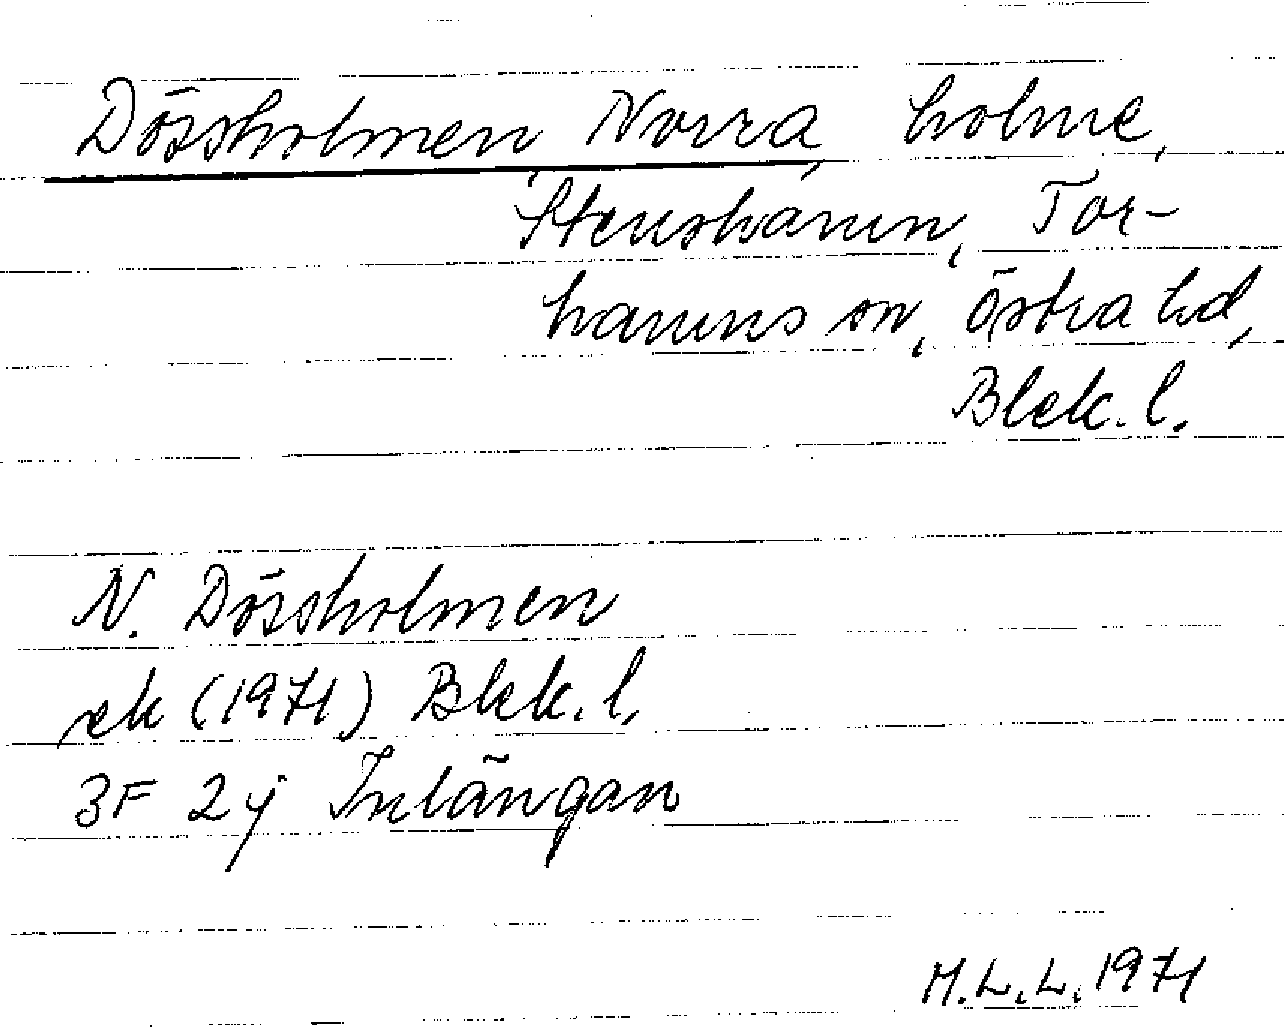 Dössholmen Norra, holme,
Stenshamn, Tor-
hamns sn, Östra hd,
Blek. l.
N. Dössholmen
ek (1971) Blek. l.
3F 2j Inlängan
M.L.L. 1971